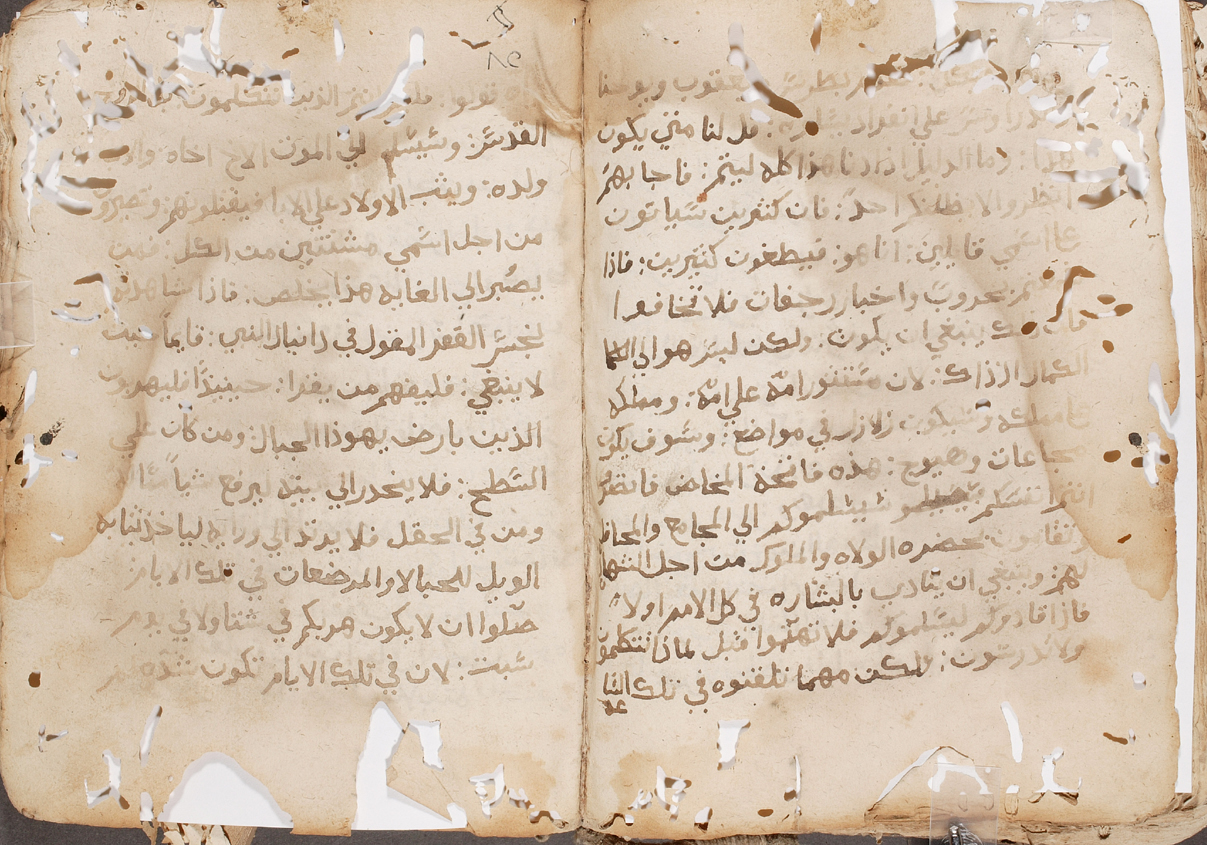 بطرس ويعقوب ويوحنا
علي انفراد قل لنا متي يكون
هذا: وما الدليل اذا دنا هذا كله ليتم: فاجابهم
انظروا لا يظلكم احد: فان كثيرين سياتون
قايلين: انا هو: فيطغون كثيرين: فاذا
بحروب واخبار رجفات فلا تخافوا
ينبغي ان يكون: ولكن ليس هو الي
الكمال اذ ذاك: لان ستثور امّه علي امّه: ومملكه
علي مملكه وسيكون زلازل في مواضع: وسوف يكون
مجاعات وهيوج: هذه فاتحة المخاض فانظروا
انتم انفسكم سيسلموكم الي المجامع والمحافل
وتقامون بحضره الولاه والملوك من اجل الشهاده
لهم وينبغي ان ينادي بالبشاره في كل الامم اولاً
فاذا قادوكم ليسلموكم فلا تهتموا قبل لماذا تتكلمون
ولا تدرسون: لكن مهما تلقنوه في تلك السا
عه
٨٤
تقولوا: فلستم انتم الذين تتكلمون بل الروح
القدس: وسيسلم الي الموت الاخ اخاه والاب
ولده: ويثب الاولاد علي الابا فيقتلونهم وتصيرون
من اجل اسمي مشنتين من الكل: فمن
يصبر الي الغايه هذا يخلص: فاذا شاهدتم
نجس القفر المقول في دانيال النبي: قايماً حيث
لا ينبغي: فليفهم من يقرا: حينيذاً فليهربون
الذين بارض يهوذا الجبال: ومن كان علي
السطح: فلا ينحدر الي بيته ليرفع شياً
ومن في الحقل فلا يرتد الي ورايه لياخذ ثيابه
الويل للحبالا والمرضعات في تلك الايام
صلّوا ان لا يكون هربكم في شتا ولا في يوم
سبت: لان في تلك الايام تكون شده لم